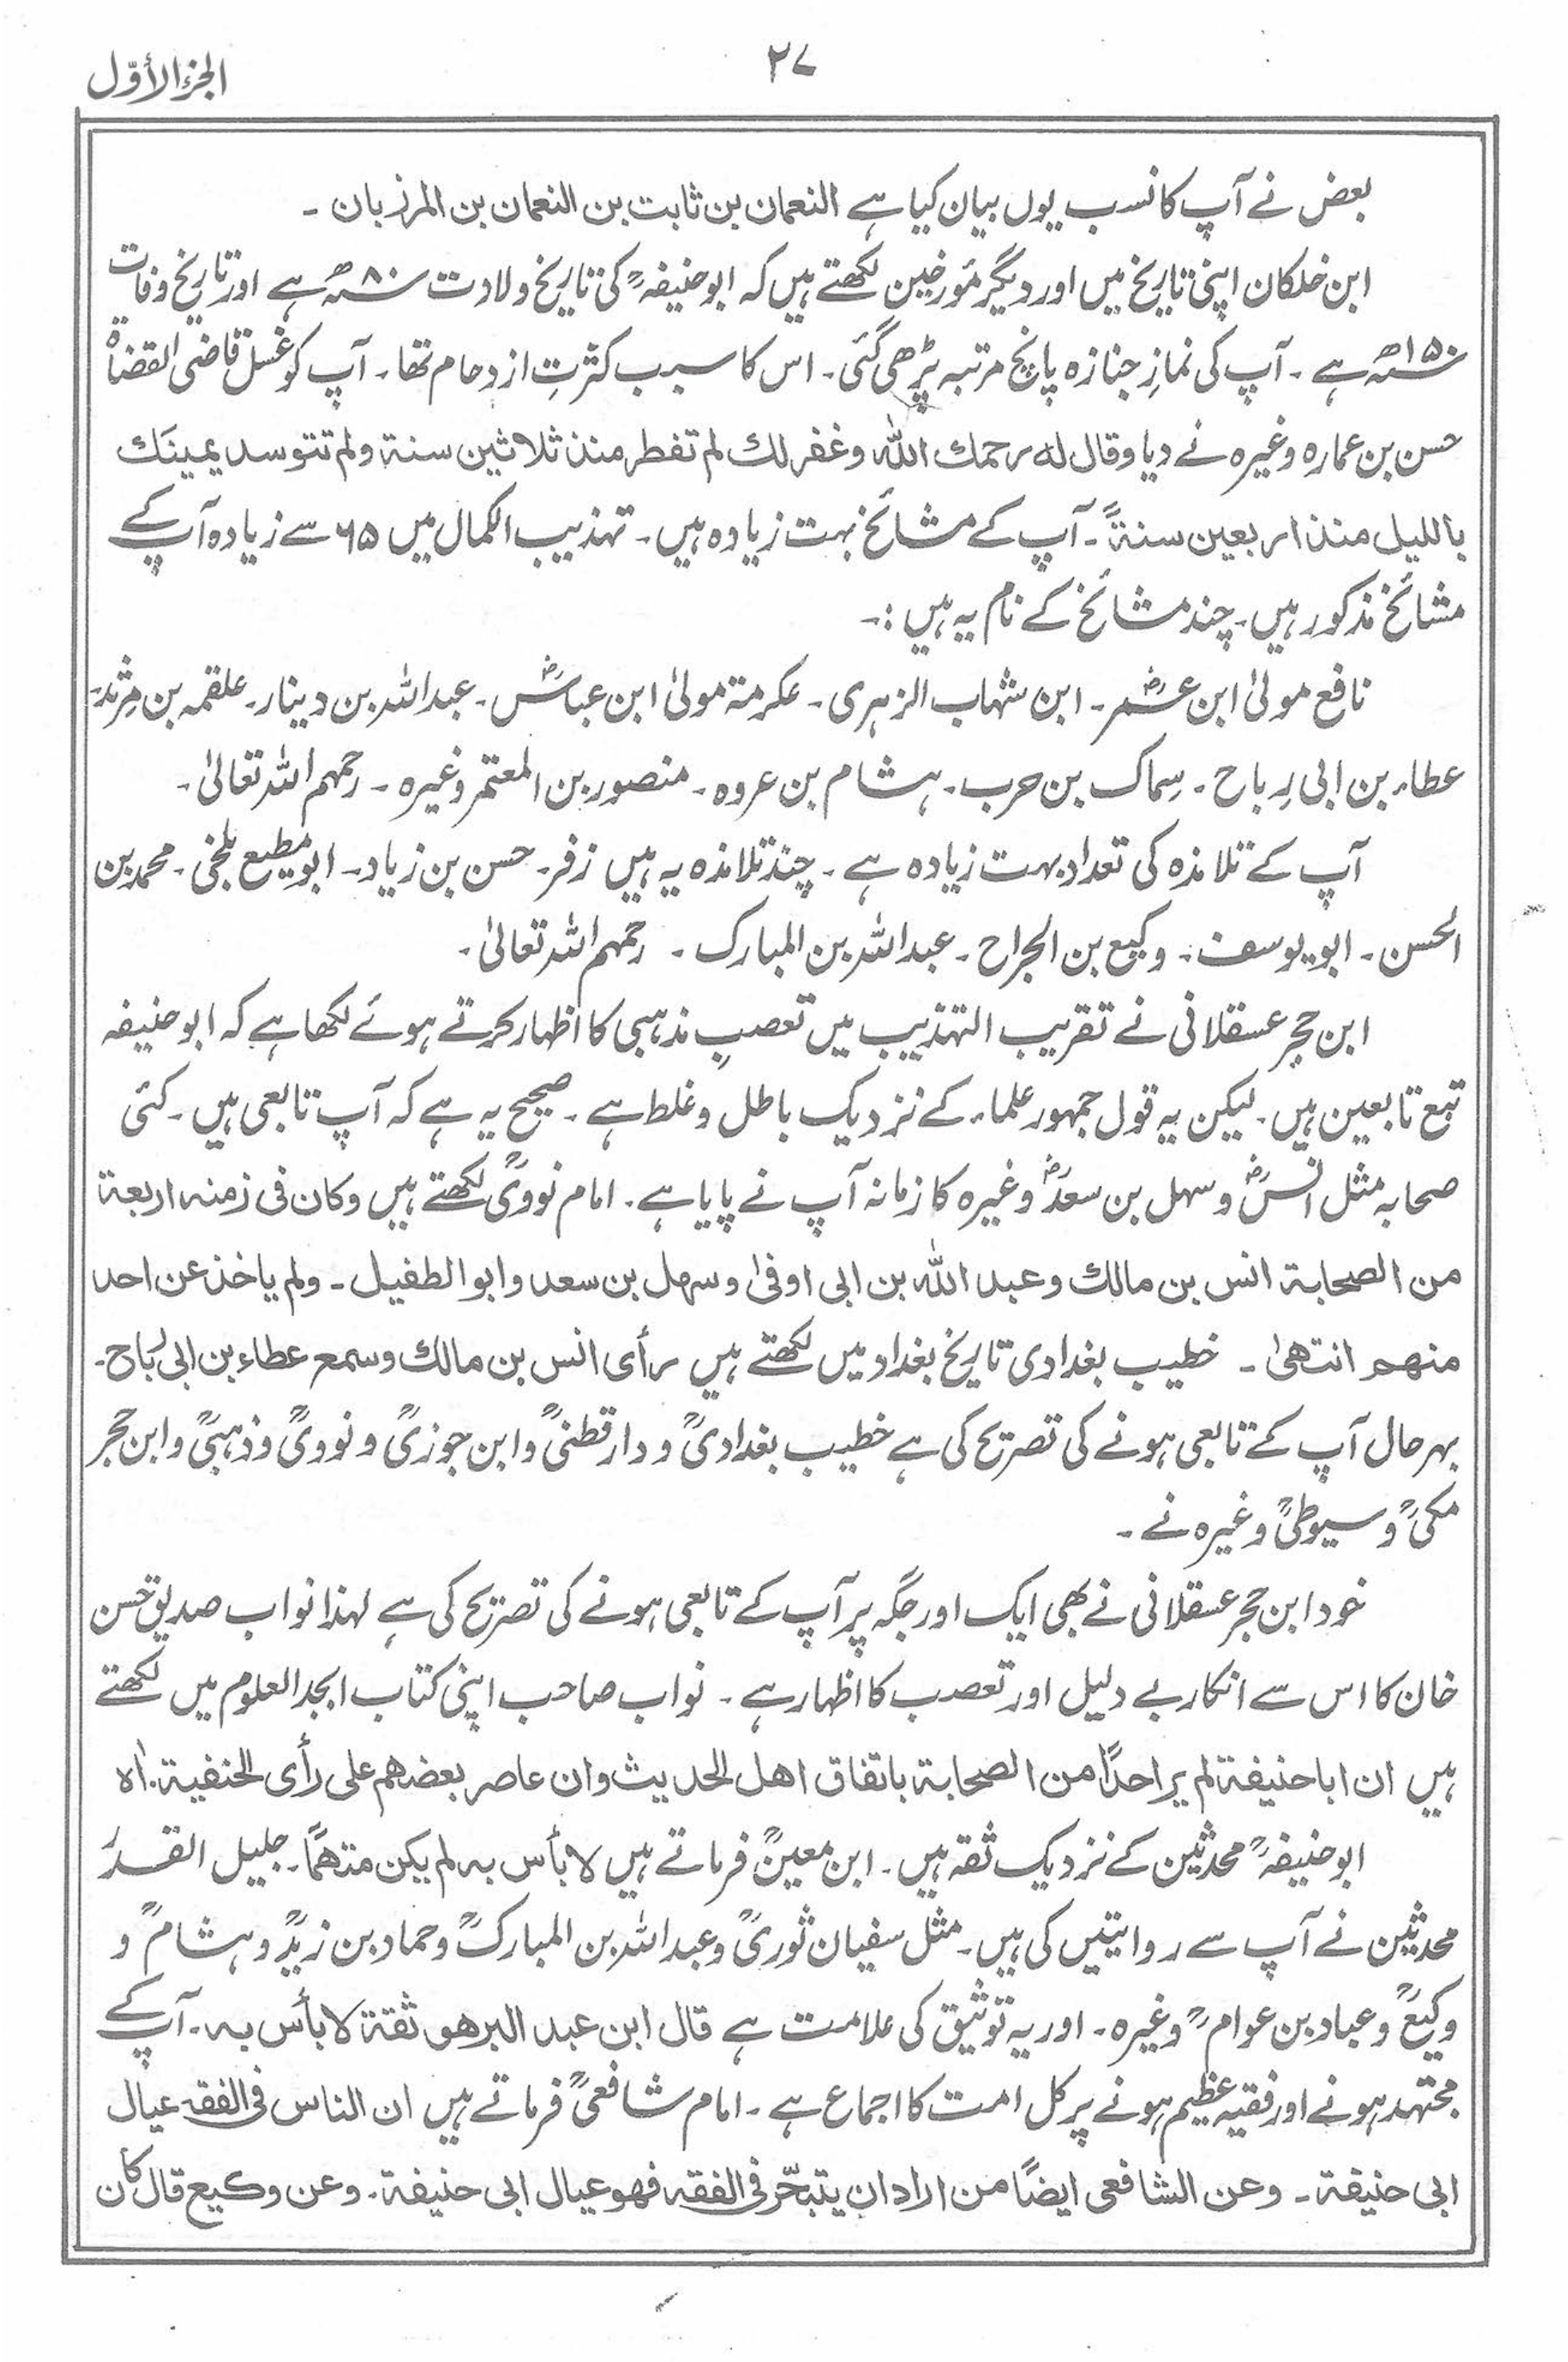 الجزء الأوّل
۲۷
بعض نے آپ کا نسب یوں بیان کیا ہے النعمان بن ثابت بن النعمان بن المرزبان ۔
ابن خلکان اپنی تاریخ میں اور دیگر مؤرخین لکھتے ہیں کہ ابو حنیفہؒ کی تاریخ ولادت سنہ ۸۰ھ ہے اور تاریخ وفات
سنہ ۱۵۰ھ ہے ۔ آپ کی نمازِ جنازہ پانچ مرتبہ پڑھی گئی ۔ اس کا سبب کثرتِ ازدحام تھا ۔ آپ کو غسل قاضی القضاۃ
حسن بن عمارہ وغیرہ نے دیا وقال له رحمك الله وغفر لك لم تفطر منذ ثلاثين سنة ولم تتوسد يمينك
بالليل منذ اربعين سنةً ۔ آپ کے مشائخ بہت زیادہ ہیں ۔ تہذیب الکمال میں ۶۵ سے زیادہ آپ کے
مشائخ مذکور ہیں ۔ چند مشائخ کے نام یہ ہیں :۔
نافع مولیٰ ابن عمرؓ ۔ ابن شہاب الزہری ۔ عکرمۃ مولیٰ ابن عباسؓ ۔ عبداللہ بن دینار ۔ علقمہ بن مرثد ۔
عطاء بن ابی رباح ۔ سِماک بن حرب ۔ ہشام بن عروہ ۔ منصور بن المعتمر وغیرہ ۔ رحمہم اللہ تعالیٰ ۔
آپ کے تلامذہ کی تعداد بہت زیادہ ہے ۔ چند تلامذہ یہ ہیں زفر ۔ حسن بن زیاد ۔ ابو مطیع بلخی ۔ محمد بن
الحسن ۔ ابو یوسف ۔ وکیع بن الجراح ۔ عبداللہ بن المبارک ۔ رحمہم اللہ تعالیٰ ۔
ابن حجر عسقلانی نے تقریب التہذیب میں تعصبِ مذہبی کا اظہار کرتے ہوئے لکھا ہے کہ ابو حنیفہ
تبع تابعین ہیں ۔ لیکن یہ قول جمہور علماء کے نزدیک باطل و غلط ہے ۔ صحیح یہ ہے کہ آپ تابعی ہیں ۔ کئی
صحابہ مثل انسؓ و سہل بن سعدؓ وغیرہ کا زمانہ آپ نے پایا ہے ۔ امام نوویؒ لکھتے ہیں وکان فی زمنہ اربعة
من الصحابة انس بن مالك وعبد الله بن ابى اوفىٰ وسهل بن سعد وابو الطفيل ۔ ولم ياخذ عن احد
منهم انتهىٰ ۔ خطیب بغدادی تاریخ بغداد میں لکھتے ہیں رأى انس بن مالك وسمع عطاء بن ابى رَباح ۔
بہر حال آپ کے تابعی ہونے کی تصریح کی ہے خطیب بغدادیؒ و دارقطنیؒ و ابن جوزیؒ و نوویؒ و ذہبیؒ و ابن حجر
مکیؒ و سیوطیؒ وغیرہ نے ۔
خود ابن حجر عسقلانی نے بھی ایک اور جگہ پر آپ کے تابعی ہونے کی تصریح کی ہے لہذا نواب صدیق حسن
خان کا اس سے انکار بے دلیل اور تعصب کا اظہار ہے ۔ نواب صاحب اپنی کتاب ابجد العلوم میں لکھتے
ہیں ان ابا حنيفة لم ير احدًا من الصحابة باتفاق اهل الحديث وان عاصر بعضهم على رأى الحنفية . اه
ابو حنیفہؒ محدثین کے نزدیک ثقہ ہیں ۔ ابن معینؒ فرماتے ہیں لا بأس به لم يكن متهمًا ۔ جلیل القدر
محدثین نے آپ سے روایتیں کی ہیں ۔ مثل سفیان ثوریؒ و عبداللہ بن المبارکؒ و حماد بن زیدؒ و ہشامؒ و
وکیعؒ و عباد بن عوامؒ وغیرہ ۔ اور یہ توثیق کی علامت ہے قال ابن عبد البر هو ثقة لا بأس به ۔ آپ کے
مجتہد ہونے اور فقیہ عظیم ہونے پر کل امت کا اجماع ہے ۔ امام شافعیؒ فرماتے ہیں ان الناس فى الفقه عيال
ابى حنيفة ۔ وعن الشافعى ايضًا من اراد ان يتبحّر فى الفقه فهو عيال ابى حنيفة . وعن وكيع قال كان